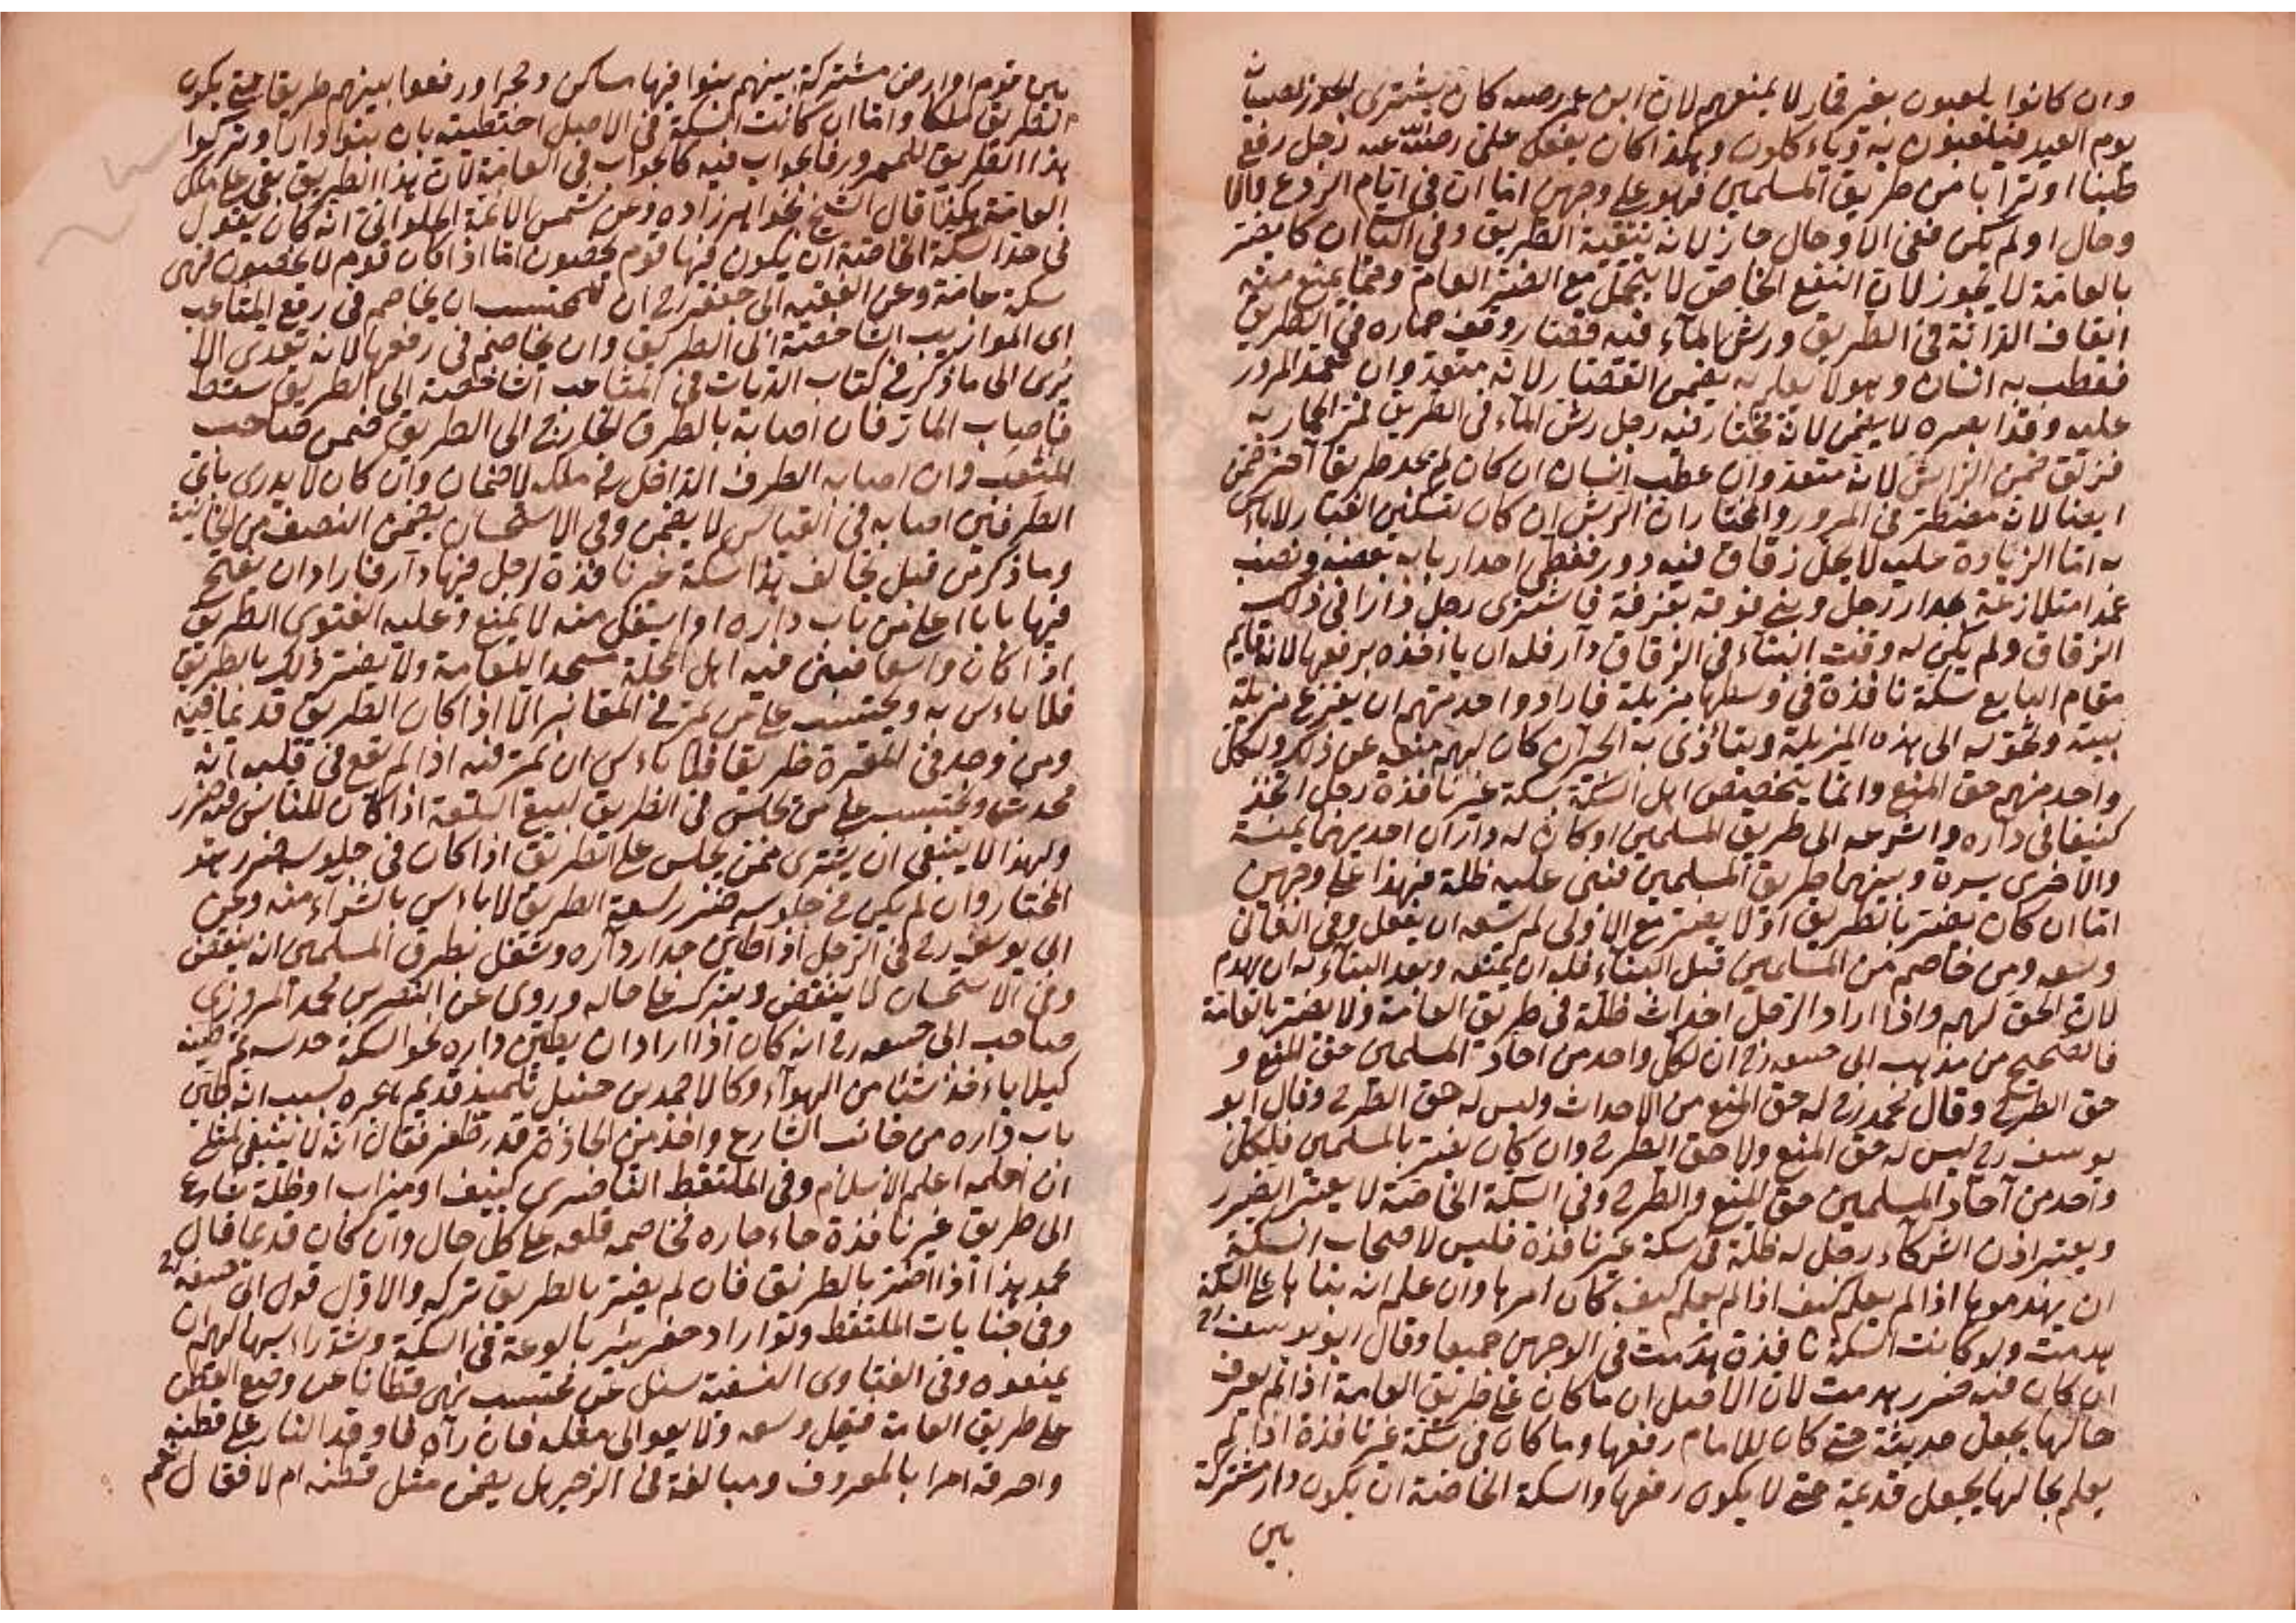 وان كانوا يلعبون بغير قمار لا يمنعهم لان ابن عمر رضه كان يشترى الجوز لصبيانه
يوم العيد فيلعبون به وياءكلون وهكذا كان يفعل على رضى الله عنه رجل رفع
طينا او ترابا من طريق المسلمين فهو على وجهين اما ان فى ايام الردع
وحال او لم يكن ففى الاول جاز لانه تنقية الطريق وفى الثانى ان كان يضر
بالعامة لا يجوز لان النفع الخاص لا يتحمل مع الضرر العام ومما يمنع منه
ايقاف الدابة فى الطريق ورش الماء فيه قصار وقف حماره فى الطريق
فعطب به انسان وهو لا يعلم به يضمن القصار لانه متعد وان تعمد المرور
عليه وقد ابصره لا يضمن لانه مختار فيه رجل رش الماء فى الطريق فمر الحمار به
فزلق ضمن الراش لانه متعد وان عطب انسان ان كان لم يجد طريقا آخر ضمن
ايضا لانه مضطر فى المرور والمختار ان الرش ان كان لتسكين الغبار لا باءس
به اما الزيادة عليه لا يحل زقاق فيه دور فغطى احد ارباب غصنه ونصب
عمدا ملازقة بجدار رجل وبنى فوقه بغرفة فاشترى رجل دارا فى ذلك
الزقاق ولم يكن له وقت البناء فى الزقاق دار فله ان ياءخذه برفعها لانه قايم
مقام البايع سكة نافذة فى وسطها مزبلة فاراد واحد منهم ان يفرغ مزبلة
بيته ويحوله الى هذه المزبلة ويتاذى به الجيران كان لهم منعه عن ذلك ولكل
واحد منهم حق المنع وانما يتخصيص اهل السكة بسكة غير نافذة رجل اتخذ
كنيفا فى داره واشرعه الى طريق المسلمين او كان له داران احديهما يمنة
والاخرى يسرة وبينهما طريق المسلمين فبنى عليه ظلة فهذا على وجهين
اما ان كان يضر بالطريق او لا يضر مع الاولى لم يسعه ان يفعل وفى الثانى
وسعه ومن خاصم من المسلمين قبل البناء فله ان يمنعه وبعد البناء له ان يهدم
لان الحق لهم واذا اراد الرجل احداث ظلة فى طريق العامة ولا يضر بالعامة
فالصحيح من مذهب ابى حنيفه رح ان لكل واحد من آحاد المسلمين حق المنع و
حق الطرح وقال محمد رح له حق المنع من الاحداث وليس له حق الطرح وقال ابو
يوسف رح ليس له حق المنع ولا حق الطرح وان كان يضر بالمسلمين فلكل
واحد من آحاد المسلمين حق المنع والطرح وفى السكة الخاصة لا يعتبر الضرر
ويعتبر اذن الشركاء رجل له ظلة فى سكة غير نافذة فليس لاصحاب السكة
ان يهدموها اذا لم يعلم كيف اذا لم يعلم كيف كان امرها وان علم انه بناها على السكة
هدمت ولو كانت السكة نافذة هدمت فى الوجهين جميعا وقال ابو يوسف رح
ان كان فيه ضرر هدمت لان الاصل ان ما كان على طريق العامة اذا لم يعرف
حالها يجعل حديثة حتى كان للامام رفعها وما كان فى سكة غير نافذة اذا لم
يعلم بحالها يجعل قديمة حتى لا يكون رفعها والسكة الخاصة ان يكون دار مشتركة
بين
بين قوم او ارض مشتركة بينهم بنوا فيها مساكن وحجرا ورفعوا بينهم طريقا حتى يكون
الطريق ملكا واما ان كانت السكة فى الاصل اختطيته بان بنوا دارا وتركوا
هذا الطريق للمرور فالجواب فيه كالجواب فى العامة لان هذا الطريق بقى على ملك
العامة هكذا قال الشيخ خواهرزاده وعن شمس الائمة الحلوانى انه كان يقول
فى حد السكة الخاصة ان يكون فيها قوم يحصون اما اذا كان قوم لا يحصون فهى
سكة عامة وعن الفقيه ابى جعفر رح ان للمحتسب ان يخاصم فى رفع المثاعب
اى الموازيب الشاخصة الى الطريق وان يخاصم فى رفعها لانه تعدى الا
يرى الى ما ذكر فى كتاب الديات فى المثاعب الشاخصة الى الطريق سقط
فاصاب المار فان اصابه بالطرف الخارج الى الطريق ضمن صاحب
المثعب وان اصابه الطرف الداخل فى ملكه لا ضمان وان كان لا يدرى باى
الطرفين اصابه فى القياس لا يضمن وفى الاستحسان يضمن النصف من الخانية
وما ذكر من قبل يخالف هذا سكة غير نافذة لرجل فيها دار فاراد ان يفتح
فيها بابا اعلى من باب داره او اسفل منه لا يمنع وعليه الفتوى الطريق
اذا كان واسعا فبنى فيه اهل المحلة مسجدا للعامة ولا يضر ذلك بالطريق
فلا باءس به ويحتسب على من يمر فى المقابر الا اذا كان الطريق قديما فيه
ومن وجد فى المقبرة طريقا فلا باءس ان يمر فيه اذا لم يقع فى قلبه انه
محدث ويحتسب على من يجلس فى الطريق لبيع السلعة اذا كان للناس فيه ضرر
ولهذا لا ينبغى ان يشترى ممن يجلس على الطريق اذا كان فى جلوسه ضرر هو
المختار وان لم يكن فى جلوسه ضرر لسعة الطريق لا باءس بالشراء منه وعن
ابى يوسف رح فى الرجل اذا طين جدار داره وشغل بطرق المسلمين انه ينقض
وفى الاستحسان لا ينقض ويترك على حاله وروى عن النصر بن محمد المروزى
صاحب ابى حنيفه رح انه كان اذا اراد ان يطين داره نحو السكة خدشه ثم طينه
كيلا ياءخذ شئا من الهواء وكا لاحمد بن حنبل تلميذ قديم بسبب انه طين
باب داره من جانب الشارع واخذ من الجادة قدر ظفر فقال انه لا ينبغى لمثلك
ان اعلمه اعلم الاسلام وفى الملتقط الناصرى كنيف او ميزاب او ظلة شارع
الى طريق غير نافذة جاء جاره يخاصمه قلعه على كل حال وان كان قديما قال
محمد هذا اذا اضر بالطريق فان لم يضر بالطريق تركه والاول قول ابى حنيفة رح
وفى جنايات الملتقط ولو اراد حفر بئر بالوعة فى السكة وسد راسها لهم ان
يمنعوه وفى الفتاوى النسفية سئل عن محتسب نهى قطانا عن وضع القطن
على طريق العامة فيقل وسعه ولا يعود الى مثله فان رآه فاوقد النار على قطنه
واحرقه امرا بالمعروف ومبالغة فى الزجر هل يضمن مثل قطنه ام لا فقال نعم